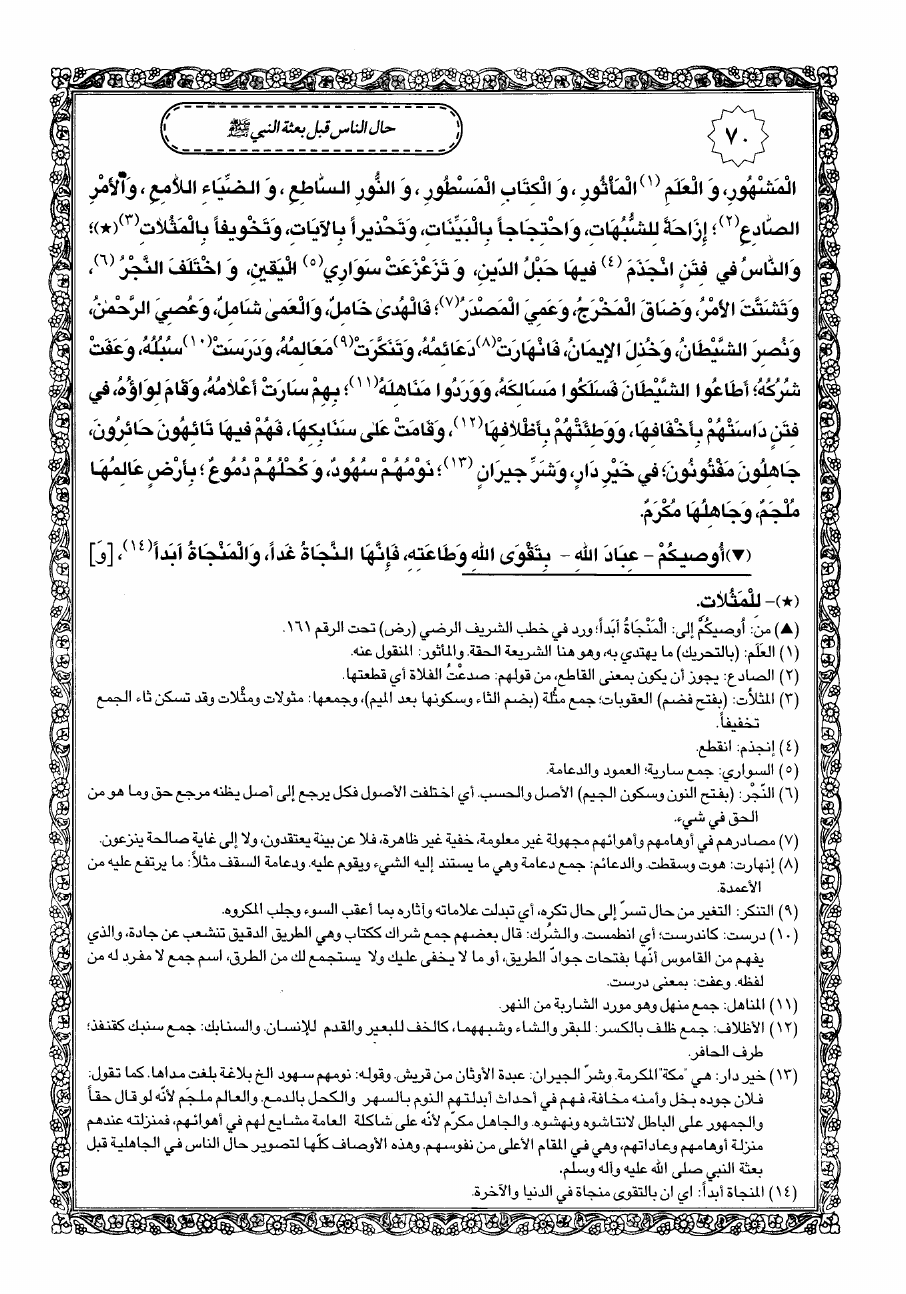 ٧٠
حال الناس قبل بعثة النبي ﷺ
الْمَشْهُورِ، وَ الْعَلَمِ (١) الْمَأْثُورِ ، وَ الْكِتَابِ الْمَسْطُورِ ، وَ النُّورِ السَّاطِعِ ، وَ الضِّيَاءِ اللَّامِعِ ، وَالْأَمْرِ
الصَّادِعِ (٢)؛ إِزَاحَةً لِلشُّبُهَاتِ، وَاحْتِجَاجاً بِالْبَيِّنَاتِ، وَتَحْذِيراً بِالْآيَاتِ، وَتَخْوِيفاً بِالْمَثُلَاتِ (٣)(★)؛
وَالنَّاسُ في فِتَنٍ انْجَذَمَ (٤) فيهَا حَبْلُ الدّينِ، وَ تَزَعْزَعَتْ سَوَارِي (٥) الْيَقينِ، وَ اخْتَلَفَ النَّجْرُ (٦)،
وَتَشَتَّتَ الأَمْرُ، وَضَاقَ الْمَخْرَجُ، وَعَمِيَ الْمَصْدَرُ (٧)؛ فَالْهُدىٰ خَامِلٌ، وَالْعَمىٰ شَامِلٌ، وَعُصِيَ الرَّحْمٰنُ،
وَنُصِرَ الشَّيْطَانُ، وَخُذِلَ الإيمَانُ، فَانْهَارَتْ (٨) دَعَائِمُهُ، وَتَنَكَّرَتْ (٩) مَعَالِمُهُ، وَدَرَسَتْ (١٠) سُبُلُهُ، وَعَفَتْ
شُرُكُهُ؛ أَطَاعُوا الشَّيْطَانَ فَسَلَكُوا مَسَالِكَهُ، وَوَرَدُوا مَنَاهِلَهُ (١١)؛ بِهِمْ سَارَتْ أَعْلَامُهُ، وَقَامَ لِوَاؤُهُ، في
فِتَنٍ دَاسَتْهُمْ بِأَخْفَافِهَا، وَوَطِئَتْهُمْ بِأَظْلَافِهَا (١٢)، وَقَامَتْ عَلىٰ سَنَابِكِهَا، فَهُمْ فيهَا تَائِهُونَ حَائِرُونَ،
جَاهِلُونَ مَفْتُونُونَ؛ في خَيْرِ دَارٍ، وَشَرِّ جيرَانٍ (١٣)؛ نَوْمُهُمْ سُهُودٌ، وَ كُحْلُهُمْ دُمُوعٌ؛ بِأَرْضٍ عَالِمُهَا
مُلْجَمٌ، وَجَاهِلُهَا مُكْرَمٌ.
(▼) أُوصيكُمْ – عِبَادَ اللهِ – بِتَقْوَى اللهِ وَطَاعَتِهِ، فَإِنَّهَا النَّجَاةُ غَداً، وَالْمَنْجَاةُ أَبَداً (١٤)، [وَ]
(★)– لِلْمَثُلَاتِ.
(▲) من: أُوصيكُمْ إلى: الْمَنْجَاةُ أَبَداً؛ ورد في خطب الشريف الرضي (رض) تحت الرقم ١٦١.
(١) العلَم: (بالتحريك) ما يهتدي به، وهو هنا الشريعة الحقة. والمأثور: المنقول عنه.
(٢) الصادع: يجوز أن يكون بمعنى القاطع، من قولهم: صدعْتُ الفلاة أي قطعتها.
(٣) المثلاُت: (بفتح فضم) العقوبات؛ جمع مثُلة (بضم الثاء وسكونها بعد الميم)، وجمعها: مثولات ومثُلات وقد تسكن ثاء الجمع
تخفيفاً.
(٤) إنجذم: انقطع.
(٥) السواري: جمع سارية؛ العمود والدعامة.
(٦) النّجْر: (بفتح النون وسكون الجيم) الأصل والحسب. أي اختلفت الأصول فكل يرجع إلى أصل يظنه مرجع حق وما هو من
الحق في شيء.
(٧) مصادرهم في أوهامهم وأهوائهم مجهولة غير معلومة، خفية غير ظاهرة، فلا عن بينة يعتقدون، ولا إلى غاية صالحة ينزعون.
(٨) إنهارت: هوت وسقطت. والدعائم: جمع دعامة وهي ما يستند إليه الشيء ويقوم عليه. ودعامة السقف مثلاً: ما يرتفع عليه من
الأعمدة.
(٩) التنكر: التغير من حال تسرّ إلى حال تكره، أي تبدلت علاماته وآثاره بما أعقب السوء وجلب المكروه.
(١٠) درست: كاندرست؛ أي انطمست. والشُرك: قال بعضهم جمع شراك ككتاب وهي الطريق الدقيق تنشعب عن جادة، والذي
يفهم من القاموس أنّها بفتحات جوادّ الطريق، أو ما لا يخفى عليك ولا يستجمع لك من الطرق، اسم جمع لا مفرد له من
لفظه. وعفت: بمعنى درست.
(١١) المناهل: جمع منهل وهو مورد الشاربة من النهر.
(١٢) الأظلاف: جمع ظلف بالكسر: للبقر والشاء وشبههما، كالخف للبعير والقدم للإنسان. والسنابك: جمع سنبك كقنفذ؛
طرف الحافر.
(١٣) خير دار: هي "مكة" المكرمة. وشرّ الجيران: عبدة الأوثان من قريش. وقوله: نومهم سهود الخ بلاغة بلغت مداها. كما تقول:
فلان جوده بخل وأمنه مخافة، فهم في أحداث أبدلتهم النوم بالسهر والكحل بالدمع. والعالم ملجَم لأنّه لو قال حقاً
والجمهور على الباطل لانتاشوه ونهشوه. والجاهل مكرّم لأنّه على شاكلة العامة مشايع لهم في أهوائهم، فمنزلته عندهم
منزلة أوهامهم وعاداتهم، وهي في المقام الأعلى من نفوسهم. وهذه الأوصاف كلّها لتصوير حال الناس في الجاهلية قبل
بعثة النبي صلى الله عليه وآله وسلم.
(١٤) المنجاة أبداً: اي ان بالتقوى منجاة في الدنيا والآخرة.